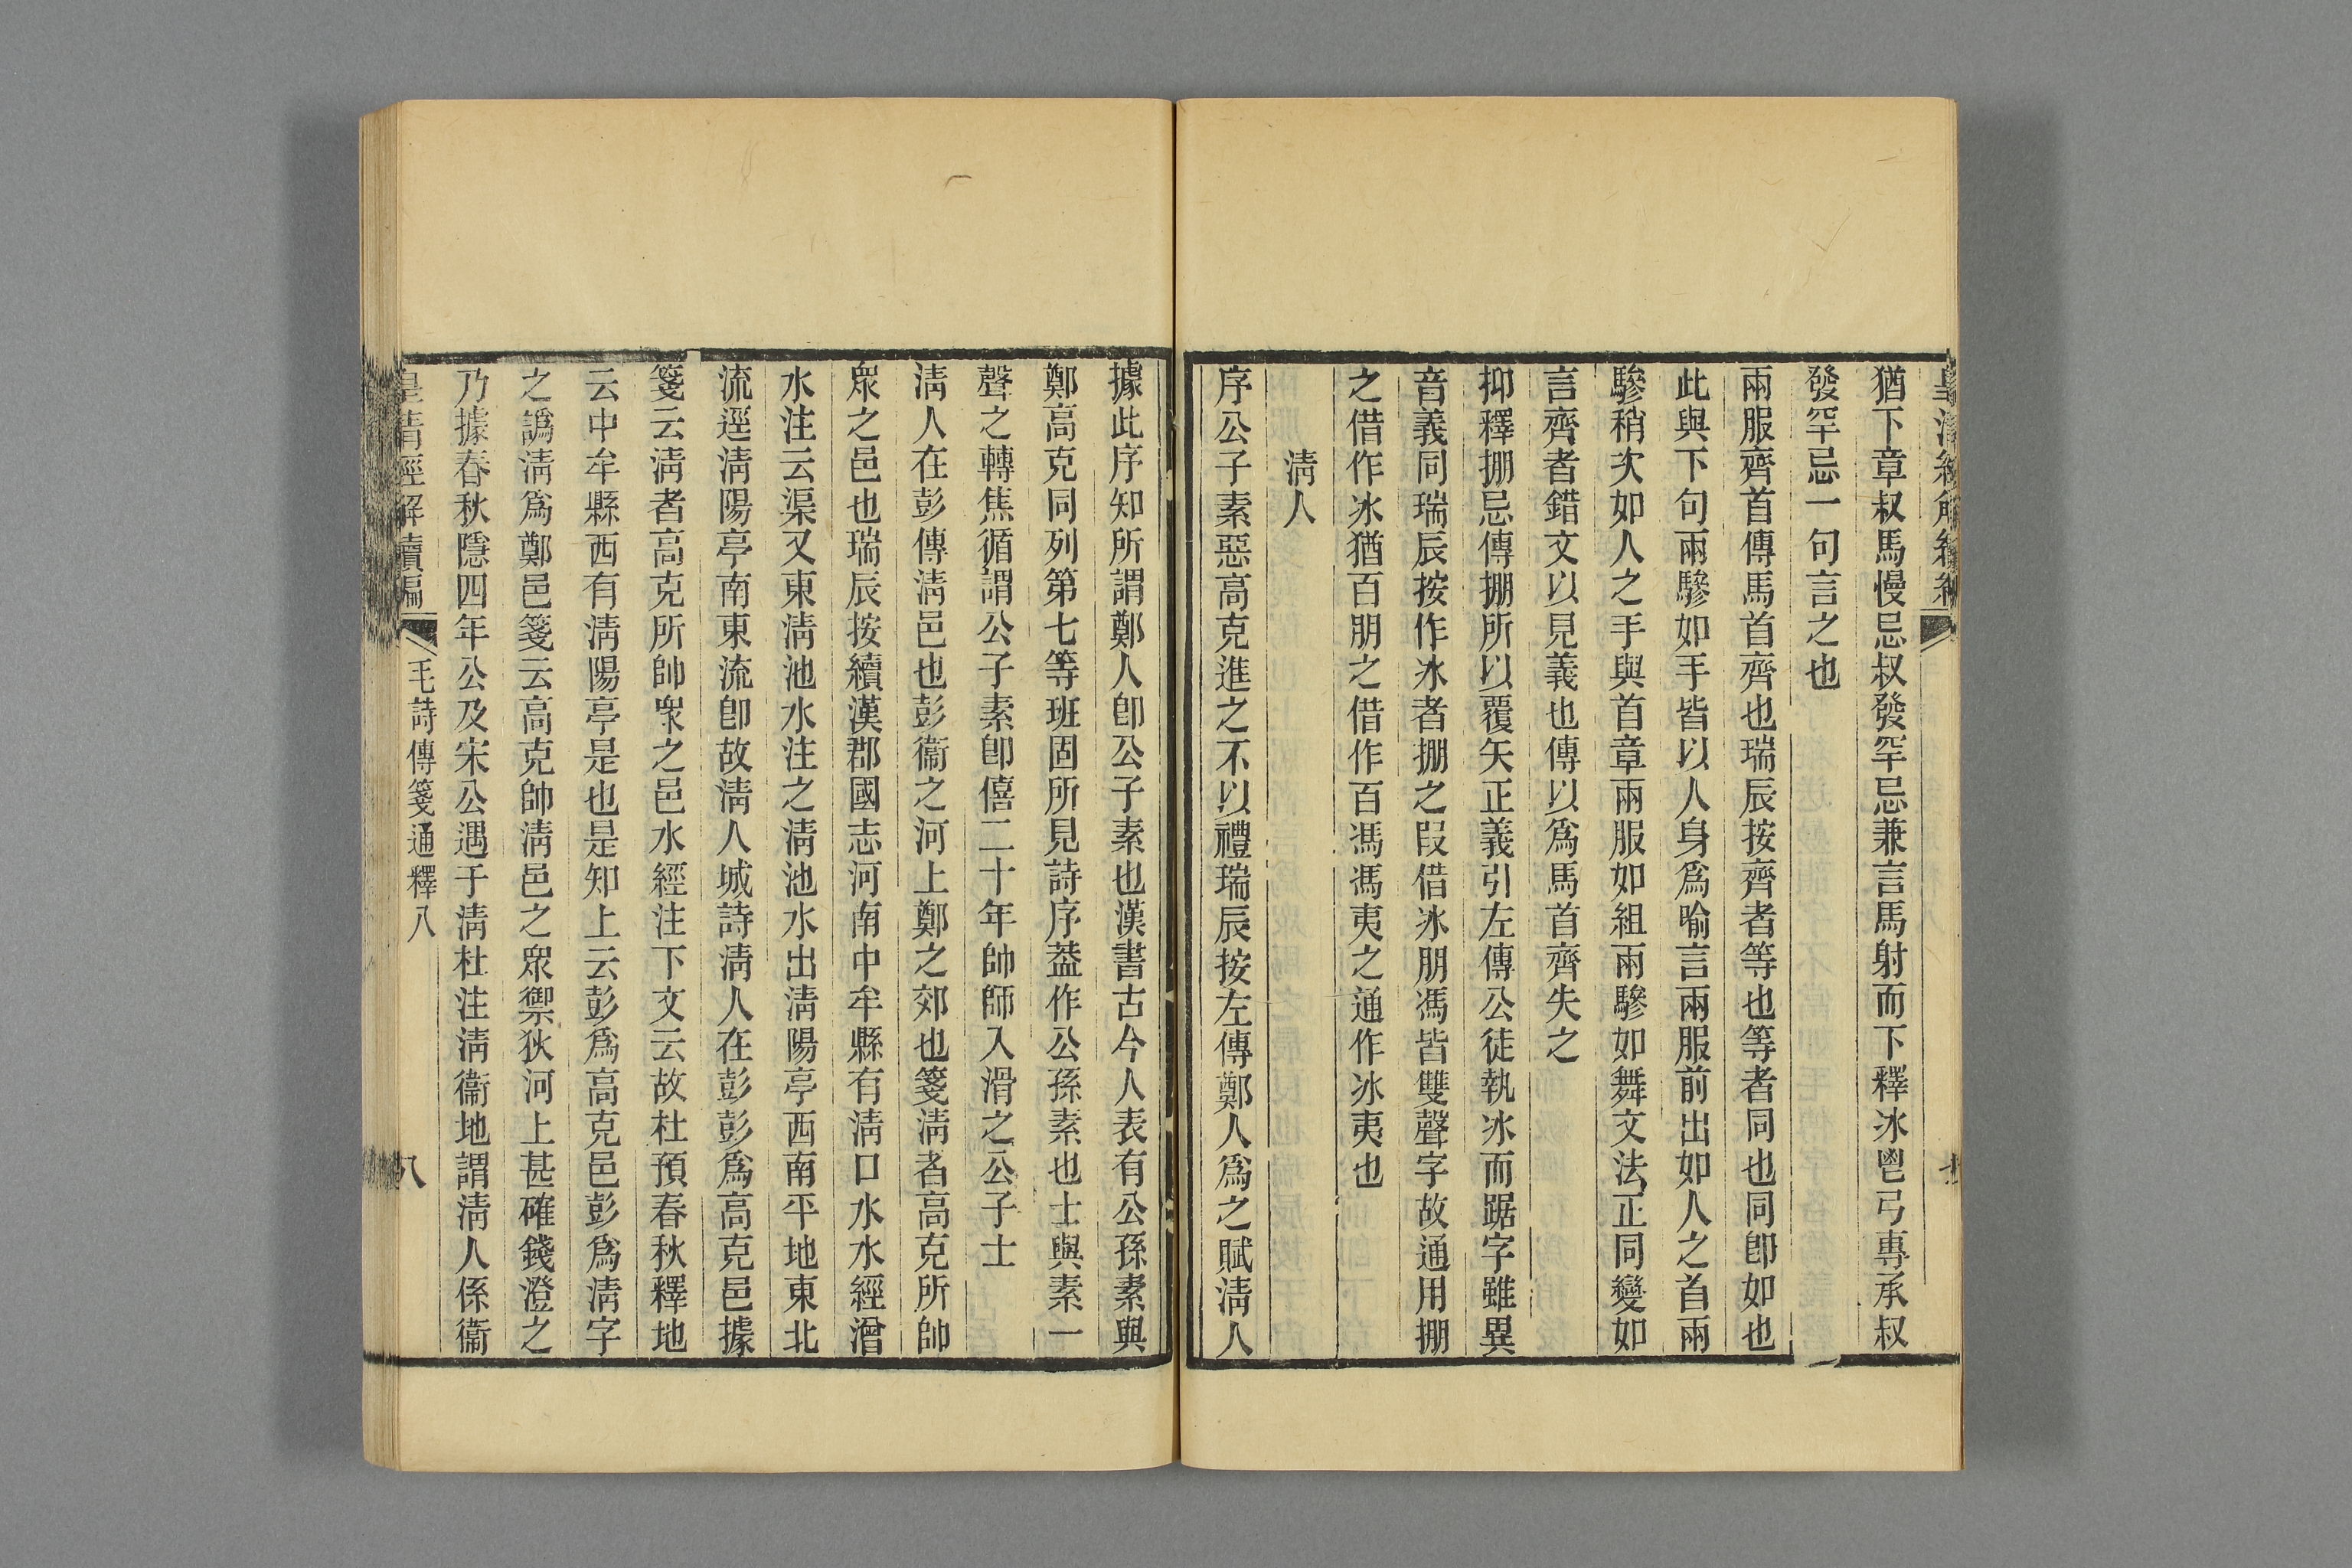 猶下章叔馬慢忌叔發罕忌兼言馬射而下釋冰鬯弓專承叔
發罕忌一句言之也
兩服齊首傳馬首齊也瑞辰按齊者等也等者同也同卽如也
此與下句兩驂如手皆以人身爲喻言兩服前出如人之首兩
驂稍次如人之手與首章兩服如組兩驂如舞文法正同變如
言齊者錯文以見義也傳以爲馬首齊失之
抑釋掤忌傳掤所以覆矢正義引左傳公徒執冰而踞字雖異
音義同瑞辰按作冰者掤之叚借冰朋馮皆雙聲字故通用掤
之借作冰猶百朋之借作百馮馮夷之通作冰夷也
淸人
序公子素惡高克進之不以禮瑞辰按左傳鄭人爲之賦淸人
據此序知所謂鄭人卽公子素也漢書古今人表有公孫素與
鄭高克同列第七等班固所見詩序葢作公孫素也士與素一
聲之轉焦循謂公子素卽僖二十年帥師入滑之公子士
淸人在彭傳淸邑也彭衞之河上鄭之郊也箋淸者高克所帥
眾之邑也瑞辰按續漢郡國志河南中牟縣有淸口水水經潧
水注云渠又東淸池水注之淸池水出淸陽亭西南平地東北
流逕淸陽亭南東流卽故淸人城詩淸人在彭彭爲高克邑據
箋云淸者高克所帥眾之邑水經注下文云故杜預春秋釋地
云中牟縣西有淸陽亭是也是知上云彭爲高克邑彭爲淸字
之譌淸爲鄭邑箋云高克帥淸邑之眾禦狄河上甚確錢澄之
乃據春秋隱四年公及宋公遇于淸杜注淸衞地謂淸人係衞
皇淸經解續編
毛詩傳箋通釋八
八